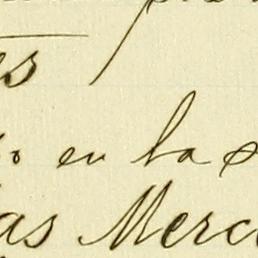 es
o en la s
as Merc